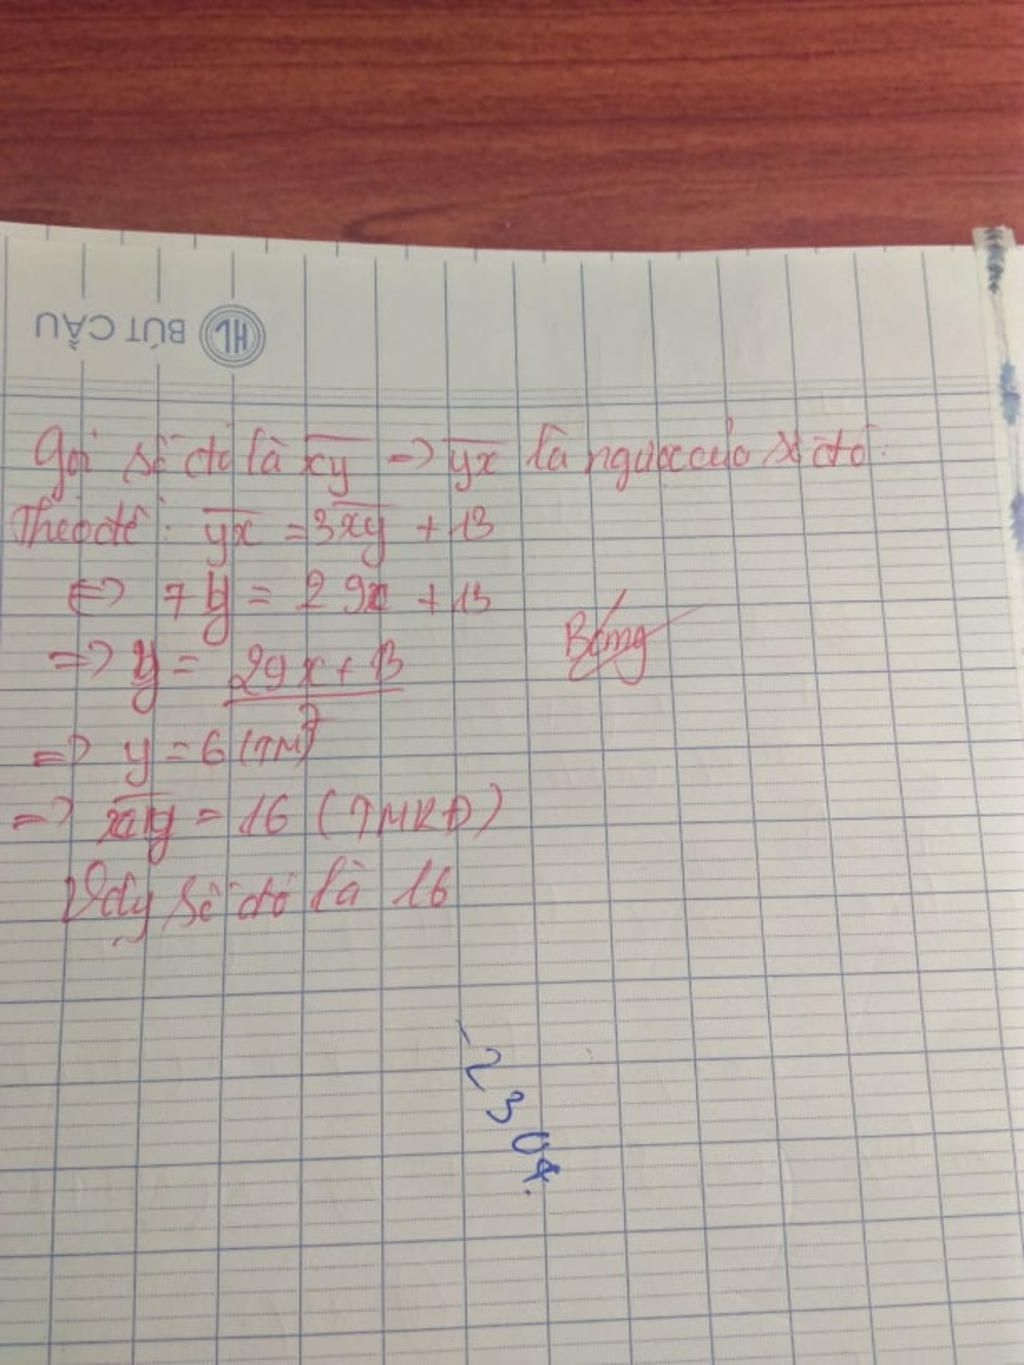 HL BÚT CẦU
Gọi số đó là xy => yx là ngược của số đó.
Theo đề: yx = 3xy + 13
<=> 7y = 29x + 13
=> y = 29x + 13 / 7
Bống
=> y = 6 (TM)
=> xy = 16 (TMKĐ)
Vậy số đó là 16
2304.